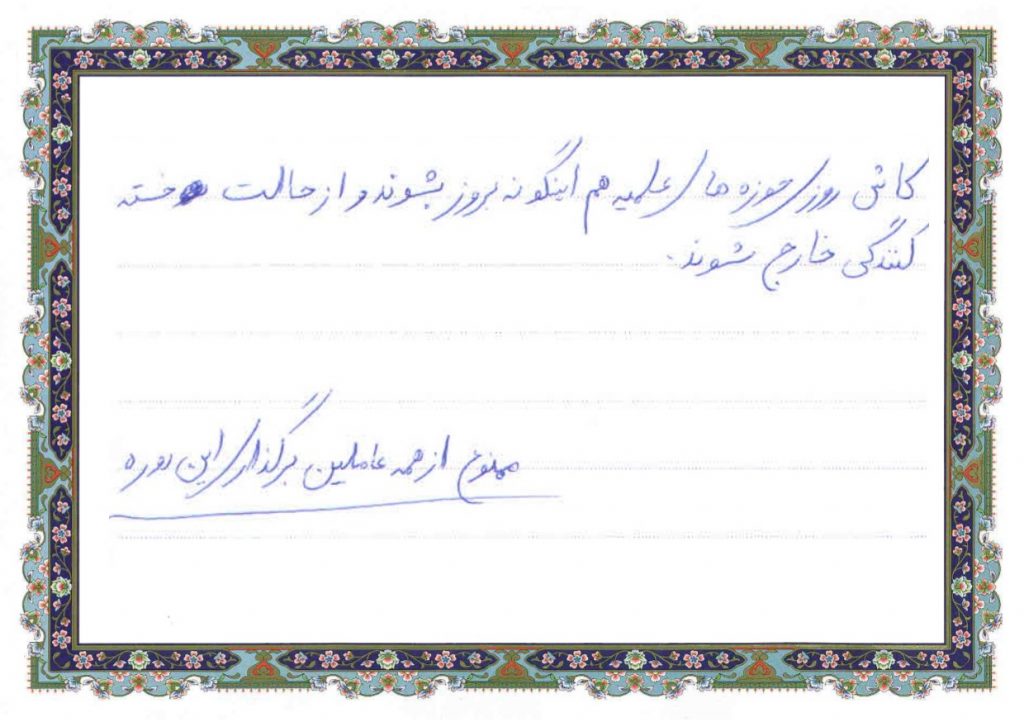 کاش روزی حوزه های علمیه هم اینگونه بروز بشوند و از حالت خسته
کنندگی خارج شوند.
ممنون از همه عاملین برگذاری این دوره